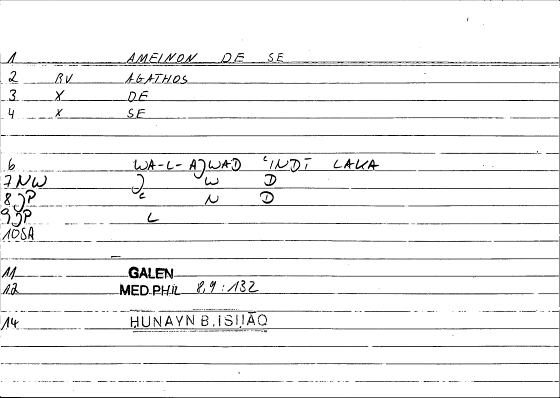 1 AMEINON DE SE
2 RV AGATHOS
3 X DE
4 X SE
6 WA-L-AJWAD ʿINDĪ LAKA
7 NW J W D
8 JP ʿ N D
9 JP L
10 SA
11 GALEN
12 MED.PHIL 8,9:132
14 HUNAYN B. ISḤĀQ